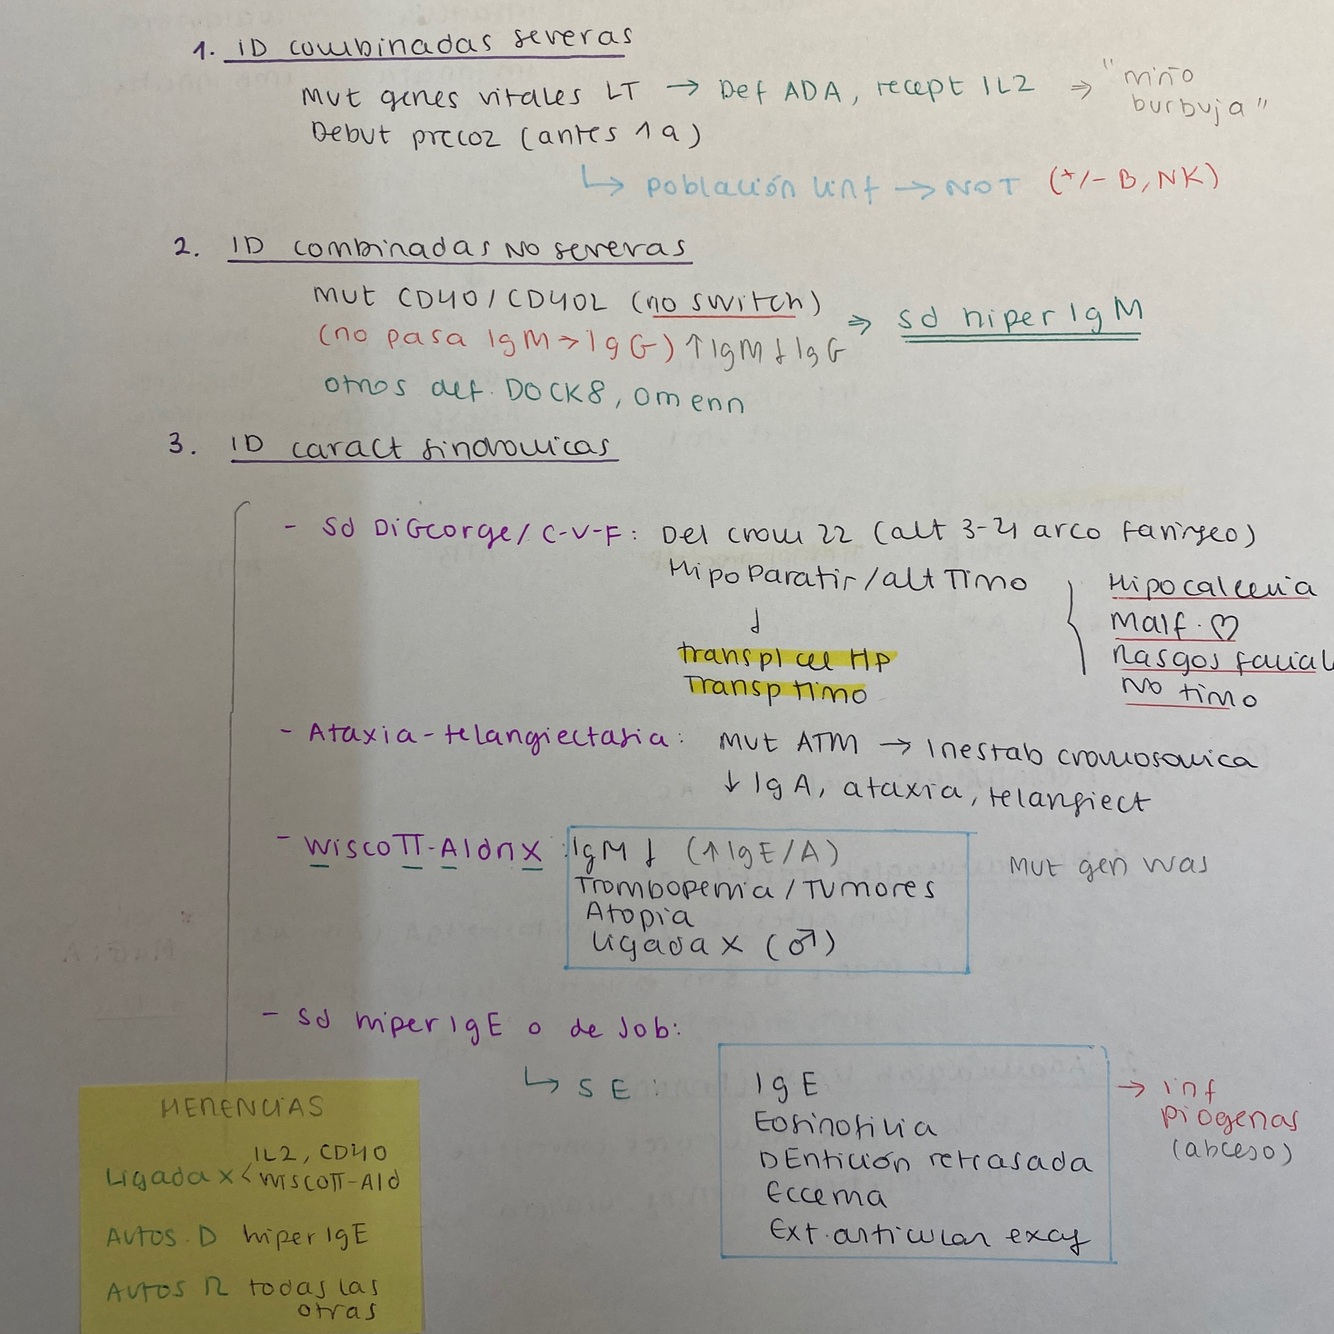 1. ID combinadas severas
Mut genes vitales LT → Def ADA, recept IL2 ⇒ "niño
burbuja"
Debut precoz (antes 1a)
↳ población linf → NO T (+/- B, NK)
2. ID combinadas NO severas
Mut CD40/CD40L (no switch)
(no pasa IgM → IgG) ↑IgM ↓IgG ⇒ sd hiper IgM
otros def. DOCK8, Omenn
3. ID caract sindromicas
- Sd DiGeorge/ C-V-F: Del crom 22 (alt 3-4 arco faríngeo)
Hipoparatir/alt Timo
↓
transpl cel HP
Transp timo
Hipocalcemia
Malf. ♡
Rasgos facial
No timo
- Ataxia-telangiectasia: Mut ATM → Inestab cromosomica
↓ IgA, ataxia, telangiect
- WiscoTT-Aldrix: IgM ↓ (↑IgE/A)
Trombopenia/Tumores
Atopia
Ligada X (♂)
Mut gen was
- Sd hiper IgE o de Job:
↳ S E:
IgE
Eosinofilia
DEntición retrasada
Eccema
Ext. articular exag
→ inf
piogenas
(abceso)
HERENCIAS
Ligada X < IL2, CD40
WiscoTT-Ald
Autos. D hiper IgE
Autos R todas las
otras